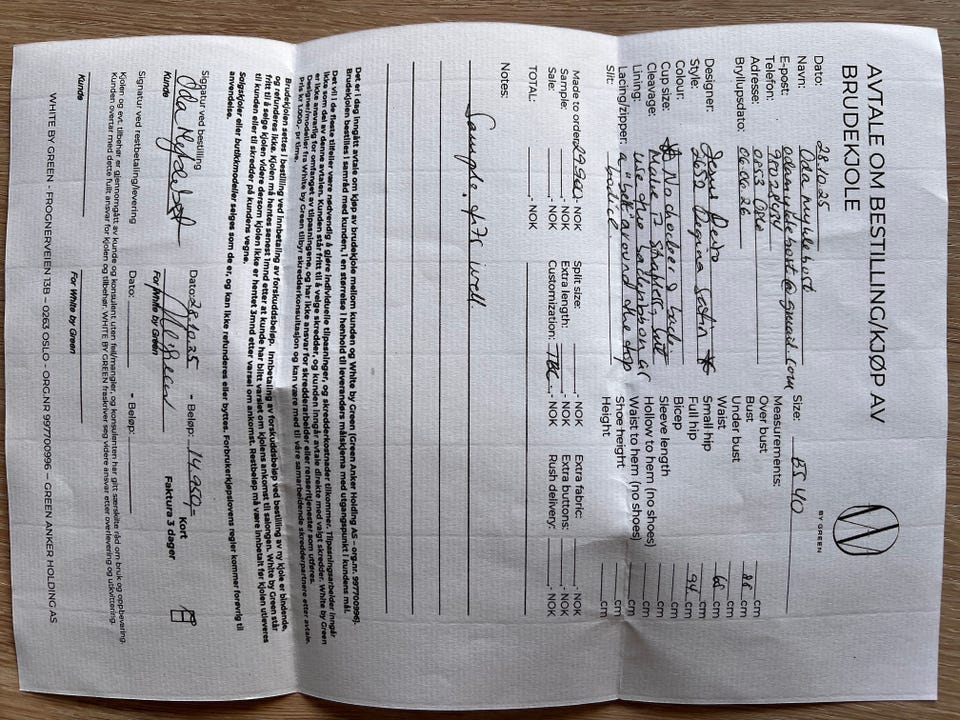 AVTALE OM BESTILLING/KJØP AV
BRUDEKJOLE
BY GREEN
Dato: 28.10.25
Navn: Oda myklebust
E-post: @gmail.com
Telefon:
Adresse: 0253 Oslo
Bryllupsdato: 06.06.26
Designer:
Style: 2652 Satin
Colour:
Cup size: No
Cleavage: Make it strapless, but
Lining: use
Lacing/zipper: a around the top
Slit: bodice.
Size: BS 40
Measurements:
Over bust cm
Bust 88 cm
Under bust cm
Waist 68 cm
Small hip cm
Full hip 94 cm
Bicep cm
Sleeve length cm
Hollow to hem (no shoes) cm
Waist to hem (no shoes) cm
Shoe height cm
Height cm
Made to order: 29.900,- NOK Split size: ,- NOK Extra fabric: ,- NOK
Sample: ,- NOK Extra length: ,- NOK Extra buttons: ,- NOK
Sale: ,- NOK Customization: TBC,- NOK Rush delivery: ,- NOK
TOTAL: ,- NOK
Notes:
Sample
Det er i dag inngått avtale om kjøp av brudekjole mellom kunden og White by Green (Green Anker Holding AS - org.nr. 997700996).
Brudekjolen bestilles i samråd med kunden, i en størrelse i henhold til leverandørens målskjema med utgangspunkt i kundens mål.
Det vil i de fleste tilfeller være nødvendig å gjøre individuelle tilpasninger, og skredderkostnader tilkommer. Tilpasningsarbeider inngår
ikke som del av denne avtalen. Kunden står fritt til å velge skredder, og kunden inngår avtale direkte med valgt skredder. White by Green
er ikke ansvarlig for omfanget av tilpasningene, og har ikke ansvar for skredderarbeider eller renseritjenester som utføres.
Designer/modeller fra White by Green tilbyr skredderkonsultasjon og kan være med til våre samarbeidende skredderpartnere etter avtale.
Pris kr 1.000,- pr time.
Brudekjolen settes i bestilling ved innbetaling av forskuddsbeløp. Innbetaling av forskuddsbeløp ved bestilling av ny kjole er bindende,
og refunderes ikke. Kjolen må hentes senest 1mnd etter at kunde har blitt varslet om kjolens ankomst til salongen. White by Green står
fritt til å selge kjolen videre dersom kjolen ikke er hentet 3mnd etter varsel om ankomst. Restbeløp må være innbetalt før kjolen utleveres
til kunden eller til skredder på kundens vegne.
Salgskjoler eller butikkmodeller selges som de er, og kan ikke refunderes eller byttes. Forbrukerkjøpslovens regler kommer forøvrig til
anvendelse.
Signatur ved bestilling Dato: 28.10.25 - Beløp: 14.950,- Kort
Faktura 3 dager
Kunde For White by Green
Signatur ved restbetaling/levering Dato: - Beløp:
Kjolen og evt. tilbehør er gjennomgått av kunde og konsulent uten feil/mangler, og konsulenten har gitt særskilte råd om bruk og oppbevaring.
Kunden overtar med dette fullt ansvar for kjolen og tilbehør. WHITE BY GREEN fraskriver seg videre ansvar etter overlevering og utkvittering.
Kunde For White by Green
WHITE BY GREEN - FROGNERVEIEN 13B - 0263 OSLO - ORG.NR 997700996 – GREEN ANKER HOLDING AS